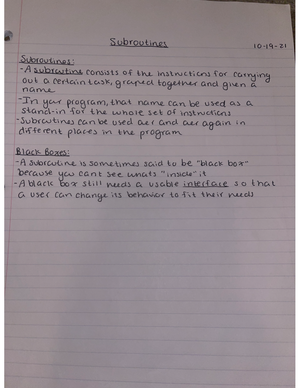 Subroutines
10-19-21
Subroutines:
-A subroutine consists of the instructions for carrying
out a certain task, grouped together and given a
name
-In your program, that name can be used as a
stand-in for the whole set of instructions
-Subroutines can be used over and over again in
different places in the program
Black Boxes:
-A subroutine is sometimes said to be "black box"
because you cant see whats "inside" it
-A black box still needs a usable interface so that
a user can change its behavior to fit their needs